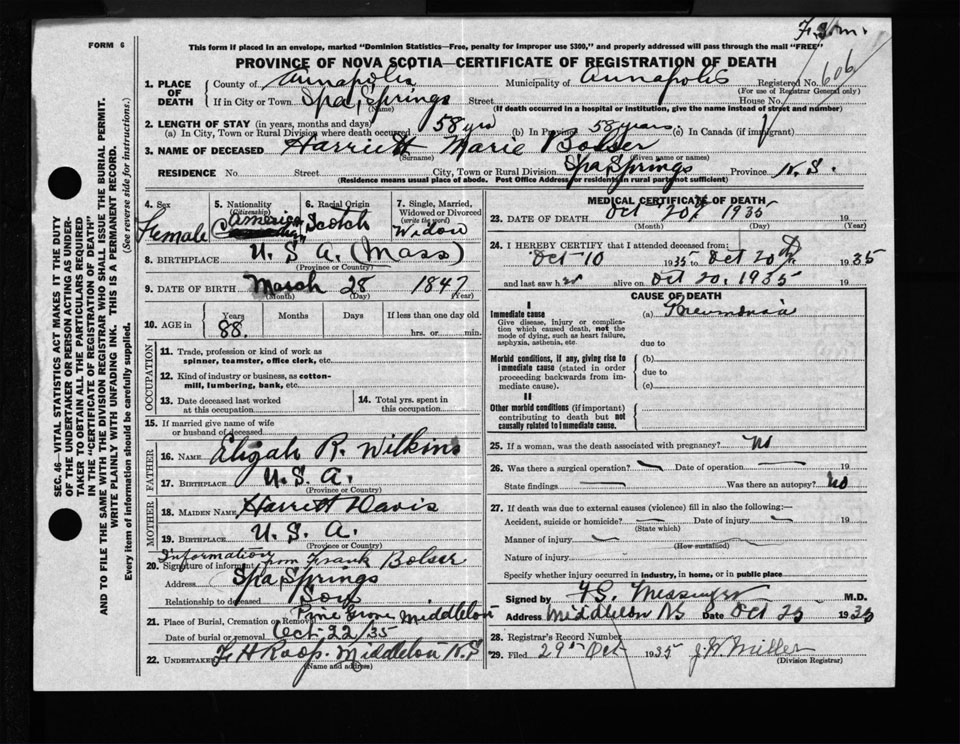 F.S.M.
FORM 6
This form if placed in an envelope, marked "Dominion Statistics—Free, penalty for improper use $300," and properly addressed will pass through the mail "FREE"
PROVINCE OF NOVA SCOTIA—CERTIFICATE OF REGISTRATION OF DEATH
1. PLACE OF DEATH County of Annapolis Municipality of Annapolis Registered No. 606
(For use of Registrar General only)
If in City or Town Spa Springs Street House No.
(Name) (If death occurred in a hospital or institution, give the name instead of street and number)
2. LENGTH OF STAY (in years, months and days)
(a) In City, Town or Rural Division where death occured 58 yrs (b) In Province 58 years (c) In Canada (if immigrant)
3. NAME OF DECEASED Harriett Marie Bolser
(Surname) (Given name or names)
RESIDENCE No. Street City, Town or Rural Division Spa Springs Province N.S.
(Residence means usual place of abode. Post Office Address for residents in rural parts not sufficient)
4. Sex Female
5. Nationality (Citizenship) America
6. Racial Origin Scotch
7. Single, Married, Widowed or Divorced (write the word) Widow
8. BIRTHPLACE U. S. A. (Mass)
(Province or Country)
9. DATE OF BIRTH March 28 1847
(Month) (Day) (Year)
10. AGE in Years 88. Months Days If less than one day old
hrs. or min.
OCCUPATION
11. Trade, profession or kind of work as spinner, teamster, office clerk, etc.
12. Kind of industry or business, as cotton-mill, lumbering, bank, etc.
13. Date deceased last worked at this occupation
14. Total yrs. spent in this occupation
15. If married give name of wife or husband of deceased
FATHER
16. NAME Eligah R. Wilkins
17. BIRTHPLACE U. S. A.
(Province or Country)
MOTHER
18. MAIDEN NAME Harriett Davis
19. BIRTHPLACE U. S. A.
(Province or Country)
Information from Frank Bolser
20. Signature of informant
Address Spa Springs
Relationship to deceased Son
21. Place of Burial, Cremation or Removal Pine Grove Middleton
Date of burial or removal Oct. 22/35
22. UNDERTAKER F. H Roop. Middleton N.S
(Name and address)
MEDICAL CERTIFICATE OF DEATH
23. DATE OF DEATH Oct 20th 1935 19
(Month) (Day) (Year)
24. I HEREBY CERTIFY that I attended deceased from:
Oct-10 1935 to Oct 20th 1935
and last saw h er alive on Oct 20, 1935 19
CAUSE OF DEATH
I
Immediate cause (a) Pneumonia
Give disease, injury or complication which caused death, not the mode of dying, such as heart failure, asphyxia, asthenia, etc.
due to
Morbid conditions, if any, giving rise to immediate cause (stated in order proceeding backwards from immediate cause).
(b)
due to
(c)
II
Other morbid conditions (if important) contributing to death but not causally related to immediate cause.
25. If a woman, was the death associated with pregnancy? No
26. Was there a surgical operation? Date of operation 19
State findings Was there an autopsy? No
27. If death was due to external causes (violence) fill in also the following:—
Accident, suicide or homicide? Date of injury 19
(State which)
Manner of injury
(How sustained)
Nature of injury
Specify whether injury occurred in industry, in home, or in public place
Signed by Messinger M.D.
Address Middleton NS Date Oct 25 1935
28. Registrar's Record Number
29. Filed 29th Oct 1935 J. W. Miller
(Division Registrar)
SEC. 46 VITAL STATISTICS ACT MAKES IT THE DUTY
OF THE UNDERTAKER OR PERSON ACTING AS UNDER-
TAKER TO OBTAIN ALL THE PARTICULARS REQUIRED
IN THE "CERTIFICATE OF REGISTRATION OF DEATH"
AND TO FILE THE SAME WITH THE DIVISION REGISTRAR WHO SHALL ISSUE THE BURIAL PERMIT.
WRITE PLAINLY WITH UNFADING INK. THIS IS A PERMANENT RECORD.
Every item of information should be carefully supplied. (See reverse side for instructions.)